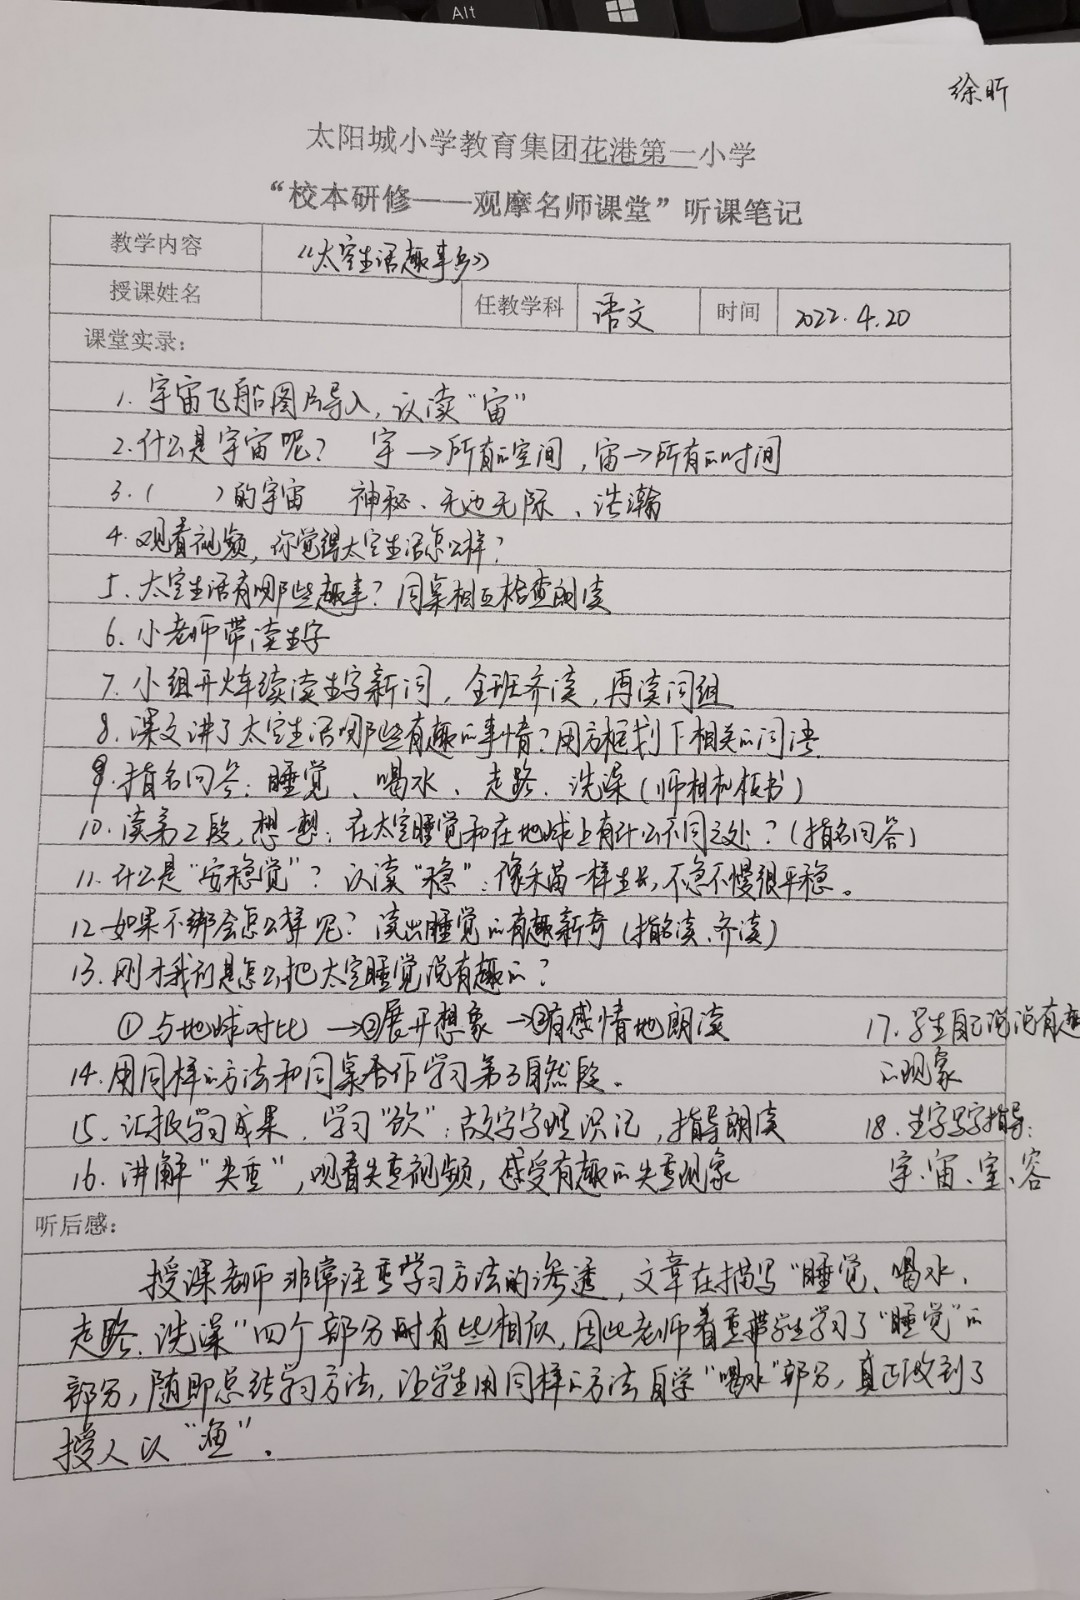 Alt
徐昕
太阳城小学教育集团花港第一小学
“校本研修——观摩名师课堂”听课笔记
教学内容 《太空生活趣事多》
授课姓名 任教学科 语文 时间 2022.4.20
课堂实录：
1. 宇宙飞船图片导入，认读“宙”
2. 什么是宇宙呢？ 宇→所有的空间，宙→所有的时间
3.（ ）的宇宙 神秘、无边无际、浩瀚
4. 观看视频，你觉得太空生活怎么样？
5. 太空生活有哪些趣事？同桌相互检查朗读
6. 小老师带读生字
7. 小组开火车续读生字新词，全班齐读，再读词组
8. 课文讲了太空生活哪些有趣的事情？用方框划下相关的词语
9. 指名回答：睡觉、喝水、走路、洗澡（师相机板书）
10. 读第2段，想一想：在太空睡觉和在地球上有什么不同之处？（指名回答）
11. 什么是“安稳觉”？认读“稳”：像禾苗一样生长，不急不慢很平稳。
12. 如果不绑会怎么样呢？读出睡觉的有趣新奇（指名读、齐读）
13. 刚才我们是怎么把太空睡觉说有趣的？
①与地球对比→②展开想象→③有感情地朗读
14. 用同样的方法和同桌合作学习第3自然段。
15. 汇报学习成果，学习“饮”：故字字理识记，指导朗读
16. 讲解“失重”，观看失重视频，感受有趣的失重现象
17. 学生自己说说有趣
的现象
18. 生字写字指导：
宇、宙、室、容
听后感：
授课老师非常注重学习方法的渗透，文章在描写“睡觉、喝水、
走路、洗澡”四个部分时有些相似，因此老师着重带学生学习了“睡觉”的
部分，随即总结学习方法，让学生用同样的方法自学“喝水”部分，真正做到了
授人以“渔”。